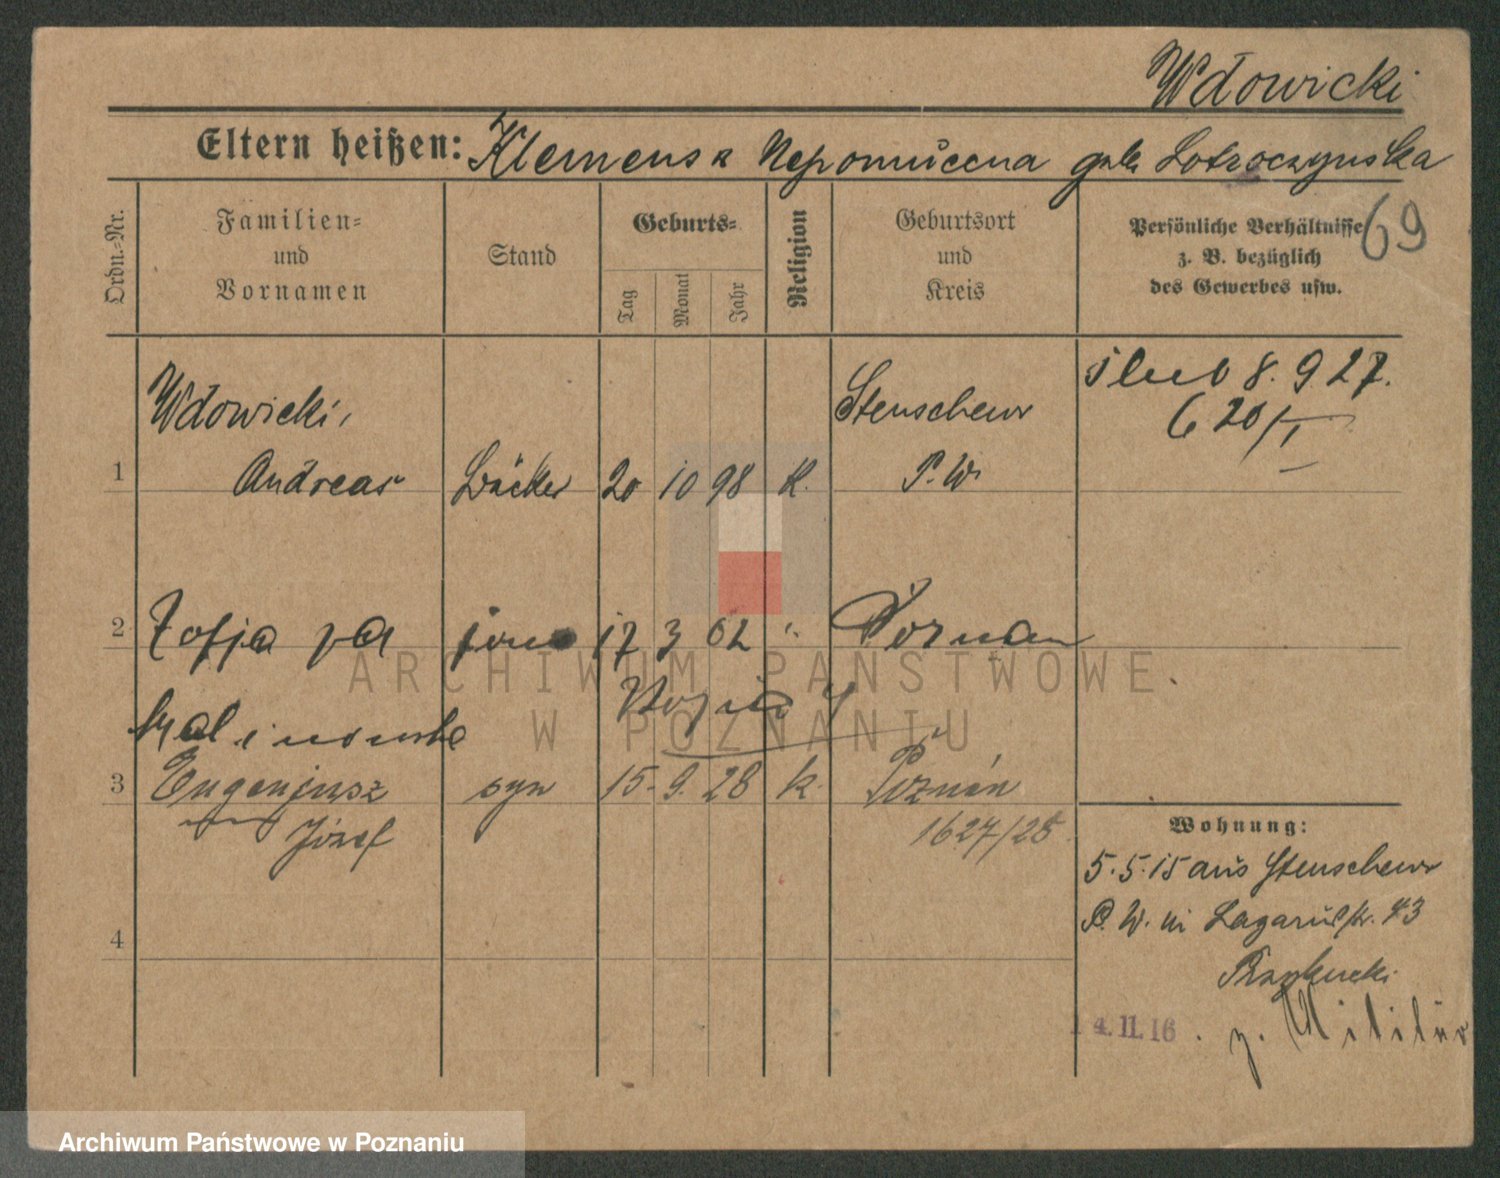 Wdowicki
Eltern heißen: Klemens u Nepomucena geb. Lotroczynska
69
Ordn.-Nr.
Familien=
und
Vornamen
Stand
Geburts=
Tag
Monat
Jahr
Religion
Geburtsort
und
Kreis
Persönliche Verhältnisse
z. B. bezüglich
des Gewerbes usw.
ślub 8. 9 27.
620/I
Wdowicki,
Stenschewo
1 Andreas Bäcker 20 10 98 K. P. W.
2 Zofja żona 17 3 02 Poznan
Kalinowska
3 Eugenjusz syn 15. 9. 28 k. Poznań
Józef 1627/28
4
Wohnung:
5. 5. 15 aus Stenschewo
P. W. in Lazarusstr. 43
14.11.16. z. Militär
ARCHIWUM PAŃSTWOWE
W POZNANIU
Archiwum Państwowe w Poznaniu